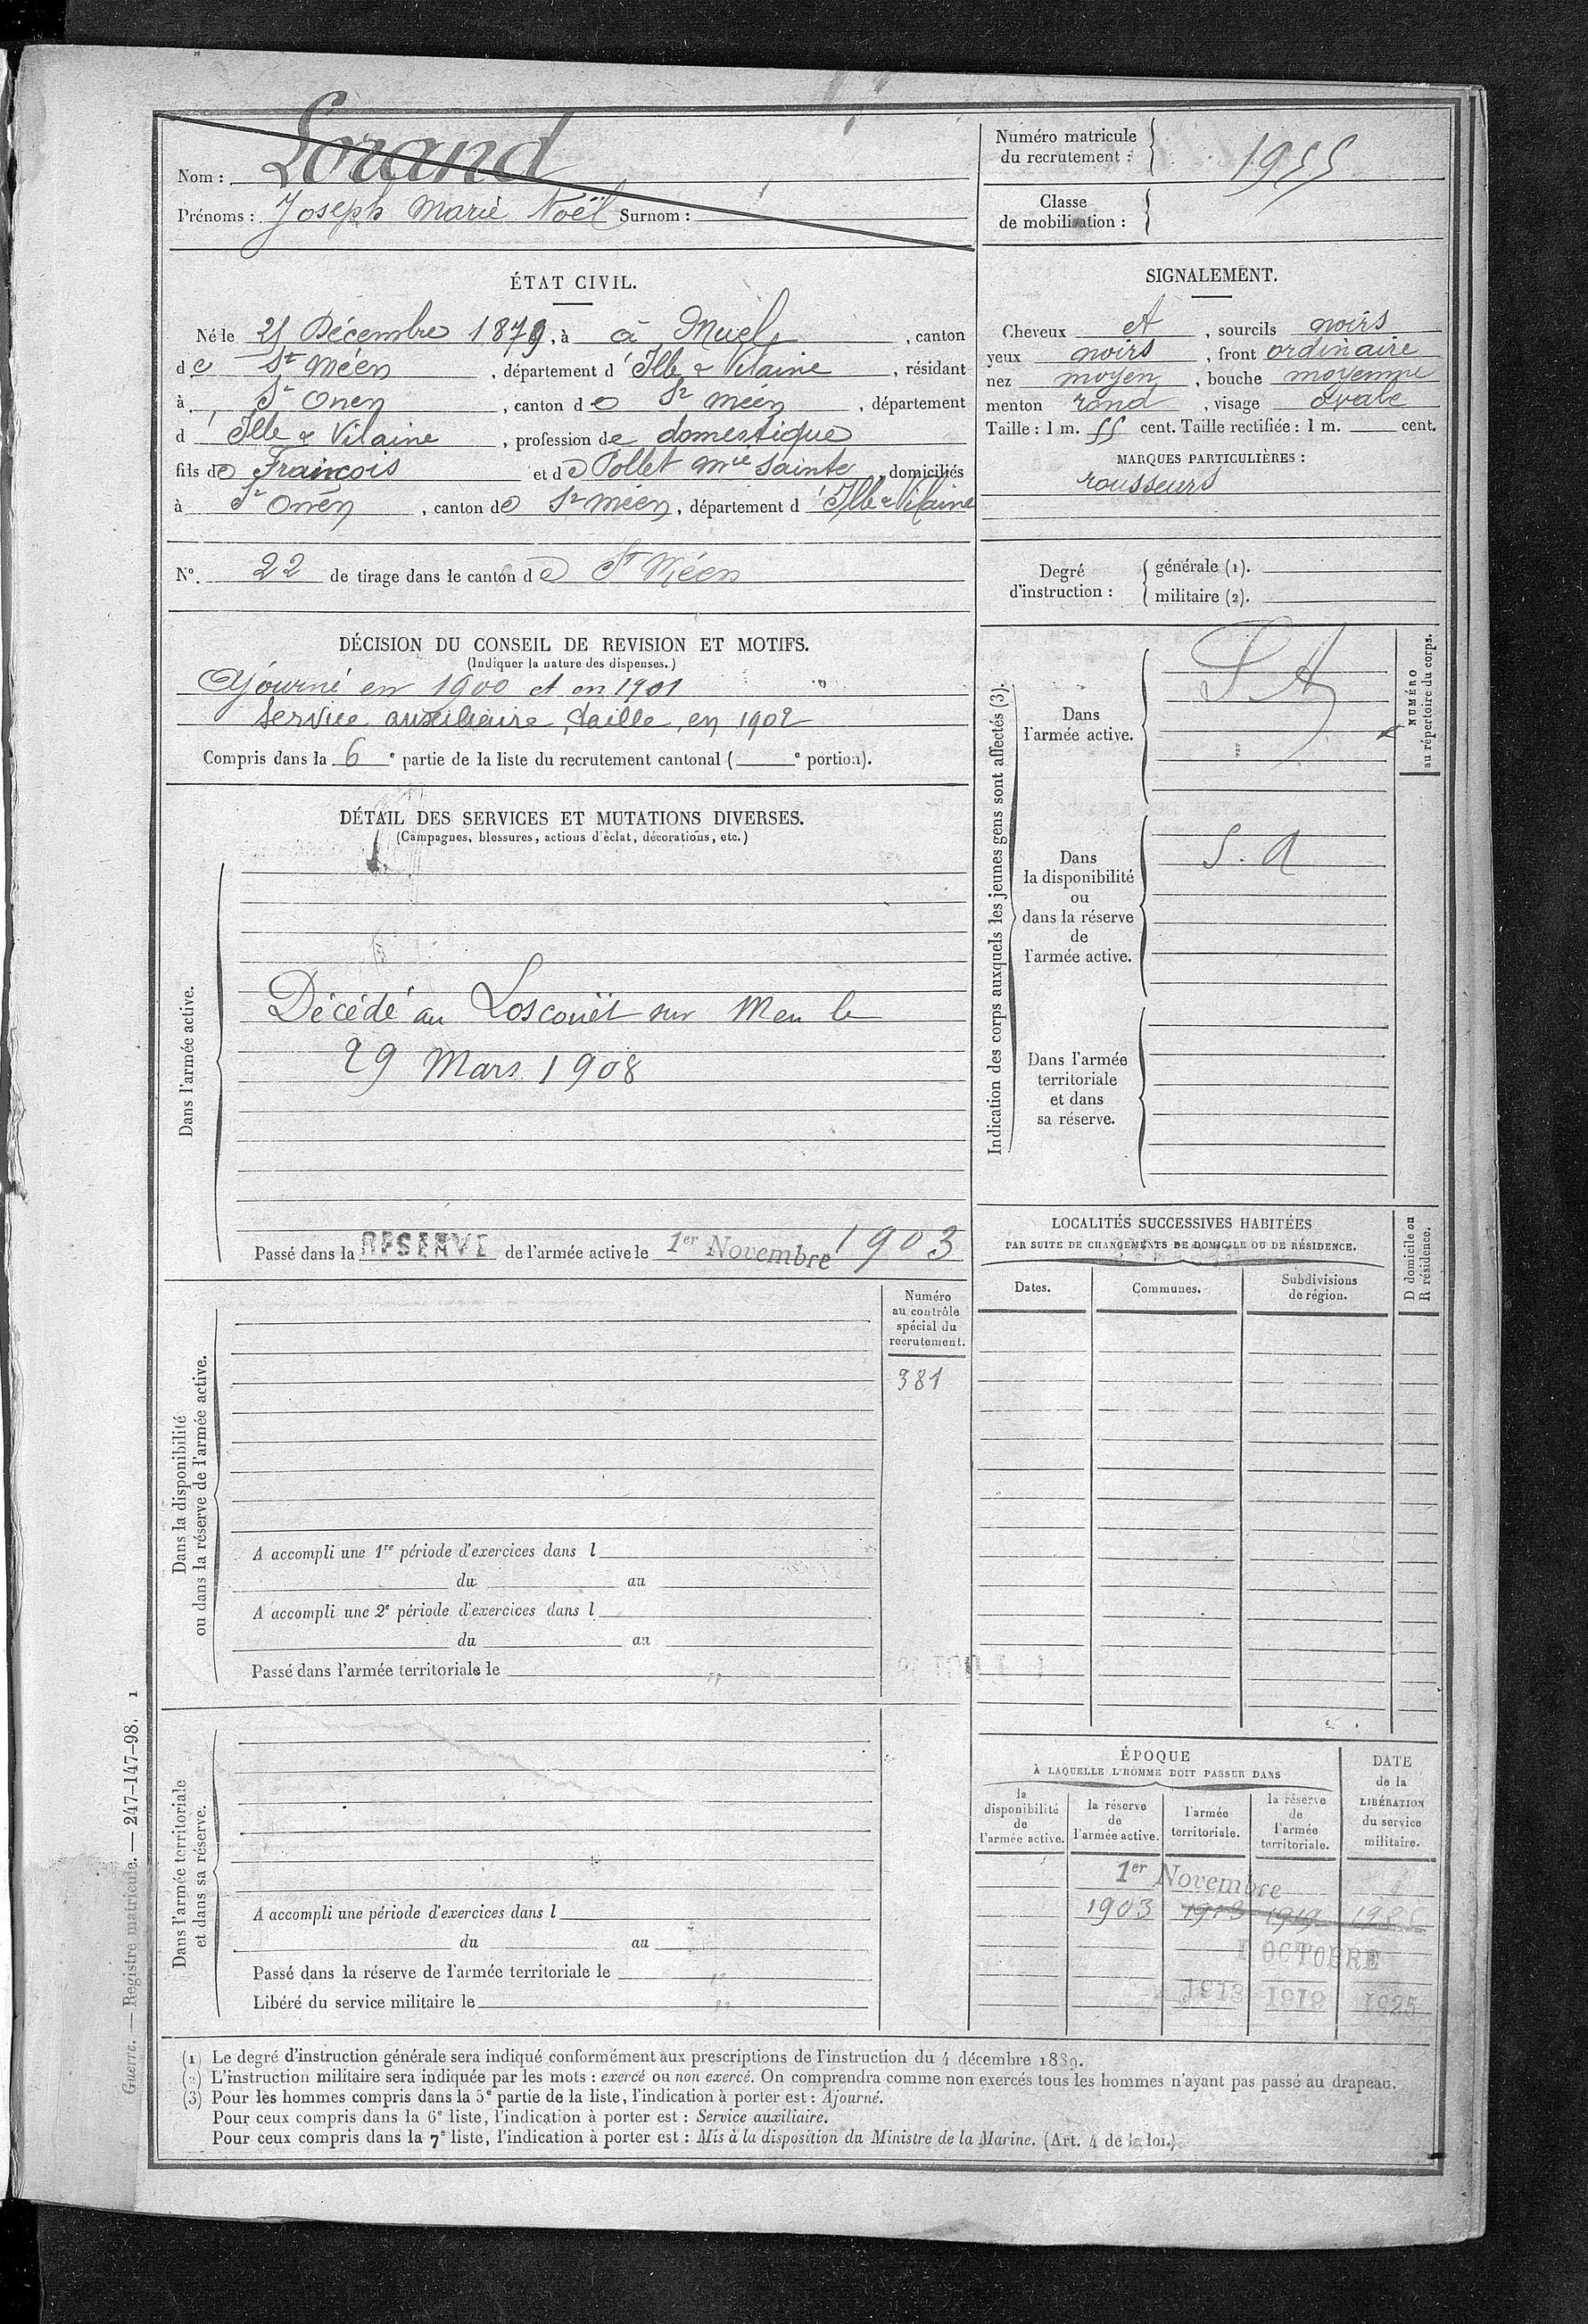 Nom : Lorand
Prénoms : Joseph Marie Noël Surnom :
Numéro matricule
du recrutement : 1955
Classe
de mobilisation :
ÉTAT CIVIL.
Né le 25 Décembre 1879, à à Muel, canton
de St Méen, département d'Ille & Vilaine, résidant
à St Onen, canton de St Méen, département
d'Ille & Vilaine, profession de domestique
fils de François et de Pollet Mie Sainte, domiciliés
à St Onen, canton de St Méen, département d'Ille & Vilaine
No. 22 de tirage dans le canton de St Méen
SIGNALEMENT.
Cheveux et, sourcils noirs
yeux noirs, front ordinaire
nez moyen, bouche moyenne
menton rond, visage ovale
Taille : 1 m. 55 cent. Taille rectifiée : 1 m. cent.
MARQUES PARTICULIÈRES :
rousseurs
Degré
d'instruction :
générale (1).
militaire (2).
DÉCISION DU CONSEIL DE REVISION ET MOTIFS.
(Indiquer la nature des dispenses.)
Ajourné en 1900 et en 1901
Service auxiliaire, taille, en 1902
Compris dans la 6e partie de la liste du recrutement cantonal ( e portion).
DÉTAIL DES SERVICES ET MUTATIONS DIVERSES.
(Campagnes, blessures, actions d'éclat, décorations, etc.)
Dans l'armée active.
Décédé au Loscouët sur Meu le
29 Mars 1908
Passé dans la RESERVE de l'armée active le 1er Novembre 1903
Indication des corps auxquels les jeunes gens sont affectés (3).
Dans
l'armée active.
S. A
NUMÉRO
au répertoire du corps.
Dans
la disponibilité
ou
dans la réserve
de
l'armée active.
S. A
Dans l'armée
territoriale
et dans
sa réserve.
LOCALITÉS SUCCESSIVES HABITÉES
PAR SUITE DE CHANGEMENTS DE DOMICILE OU DE RÉSIDENCE.
Dates.
Communes.
Subdivisions
de région.
D domicile ou
R résidence.
Dans la disponibilité
ou dans la réserve de l'armée active.
Numéro
au contrôle
spécial du
recrutement.
381
A accompli une 1re période d'exercices dans l
du au
A accompli une 2e période d'exercices dans l
du au
Passé dans l'armée territoriale le
Dans l'armée territoriale
et dans sa réserve.
A accompli une période d'exercices dans l
du au
Passé dans la réserve de l'armée territoriale le
Libéré du service militaire le
ÉPOQUE
À LAQUELLE L'HOMME DOIT PASSER DANS
la
disponibilité
de
l'armée active.
la réserve
de
l'armée active.
l'armée
territoriale.
la réserve
de
l'armée
territoriale.
DATE
de la
LIBÉRATION
du service
militaire.
1er Novembre
1903 1913 1919
1 OCTOBRE
1913 1919 1925
(1) Le degré d'instruction générale sera indiqué conformément aux prescriptions de l'instruction du 4 décembre 1889.
(2) L'instruction militaire sera indiquée par les mots : exercé ou non exercé. On comprendra comme non exercés tous les hommes n'ayant pas passé au drapeau.
(3) Pour les hommes compris dans la 5e partie de la liste, l'indication à porter est : Ajourné.
Pour ceux compris dans la 6e liste, l'indication à porter est : Service auxiliaire.
Pour ceux compris dans la 7e liste, l'indication à porter est : Mis à la disposition du Ministre de la Marine. (Art. 4 de la loi.)
Guerre. — Registre matricule. — 247-147-98. 1